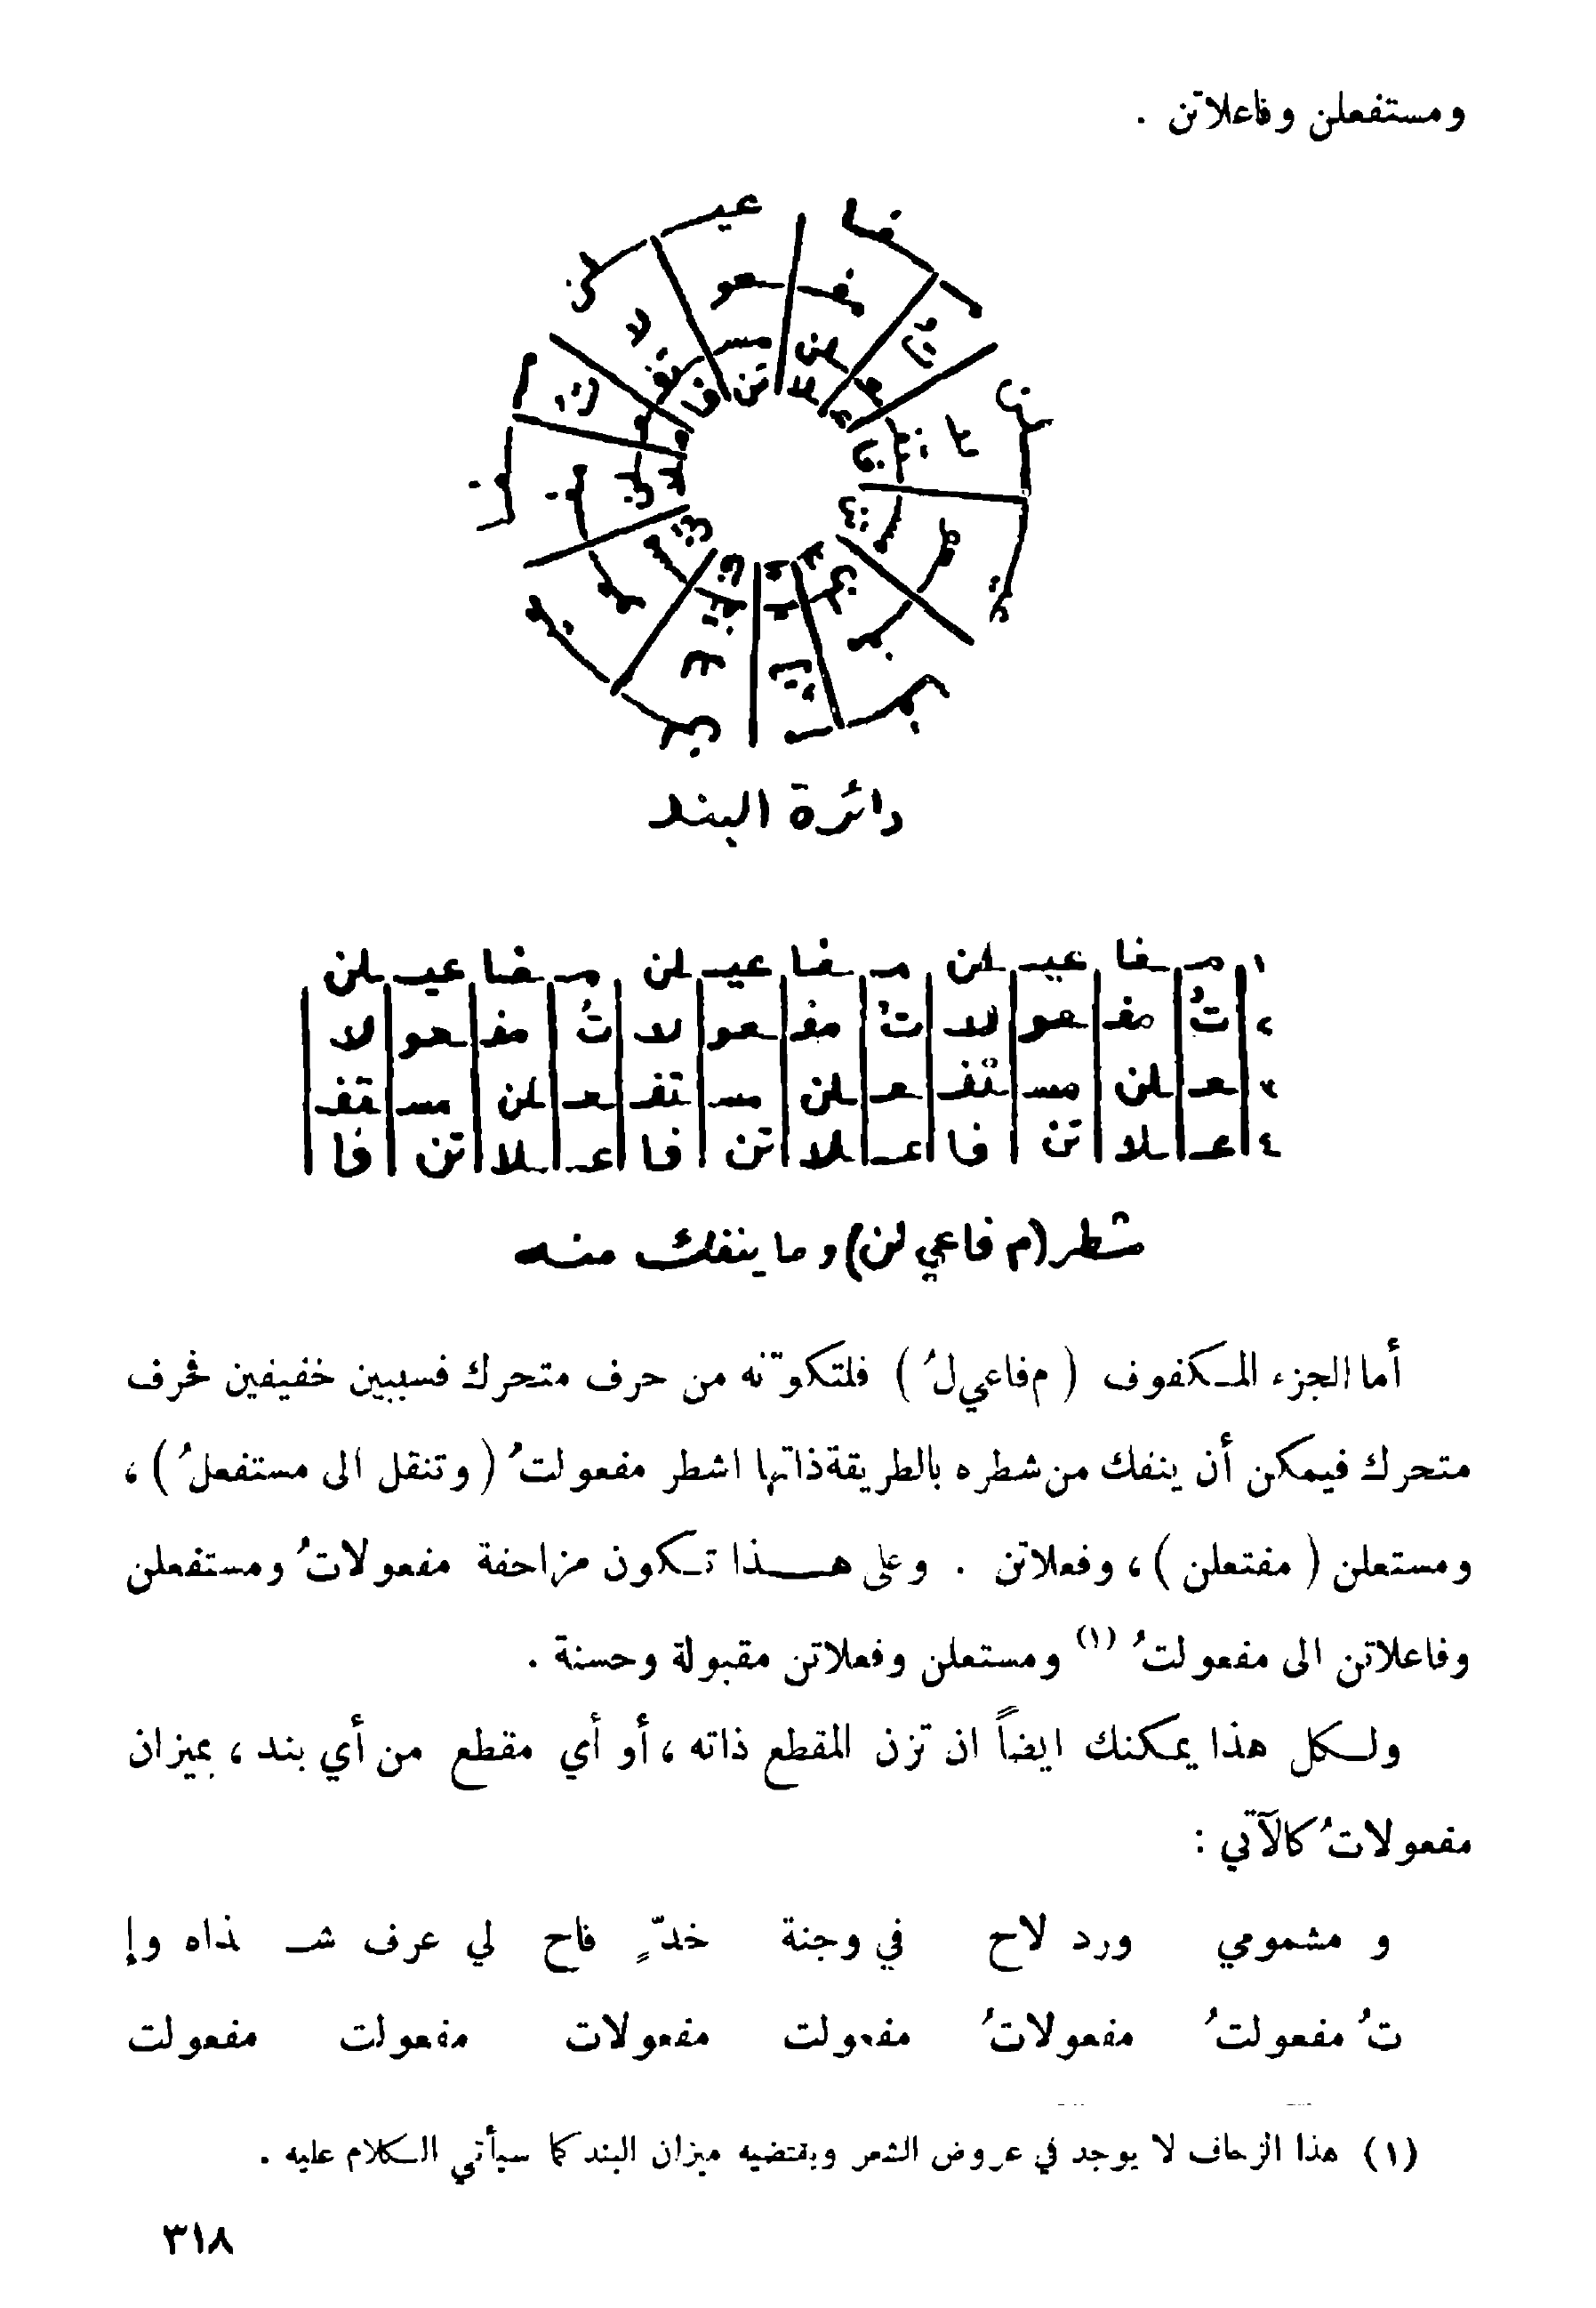 ومستفعلن وفاعلاتن .
دائرة البند
١ مـ فا عيـ لن مـ فا عيـ لن مـ فا عيـ لن
٢ تُ مفـ عو لا تُ مفـ عو لا تُ مفـ عو لا
٣ عـ لن مسـ تفـ عـ لن مسـ تفـ عـ لن مسـ تفـ
٤ عـ لا تن فا عـ لا تن فا عـ لا تن فا
شطر (م فاعي لن) وما ينفك منه
أما الجزء المكفوف ( م‌فاعي‌لُ ) فلتكوّنه من حرف متحرك فسببين خفيفين فحرف
متحرك فيمكن أن ينفك من شطره بالطريقة ذاتها اشطر مفعولتُ ( وتنقل الى مستفعلُ ) ،
ومستعلن ( مفتعلن ) ، وفعلاتن . وعلى هـذا تكون مزاحفة مفعولاتُ ومستفعلن
وفاعلاتن الى مفعولتُ (١) ومستعلن وفعلاتن مقبولة وحسنة .
ولكل هذا يمكنك ايضاً ان تزن المقطع ذاته ، أو أي مقطع من أي بند ، بميزان
مفعولاتُ كالآتي :
و مشمومي ورد لاح في وجنة خدّ ٍ فاح لي عرف شـ ـذاه وإ
تُ مفعولتُ مفعولاتُ مفعولت مفعولات مفعولت مفعولت
(١) هذا الزحاف لا يوجد في عروض الشعر ويقتضيه ميزان البند كما سيأتي الكلام عليه .
٣١٨